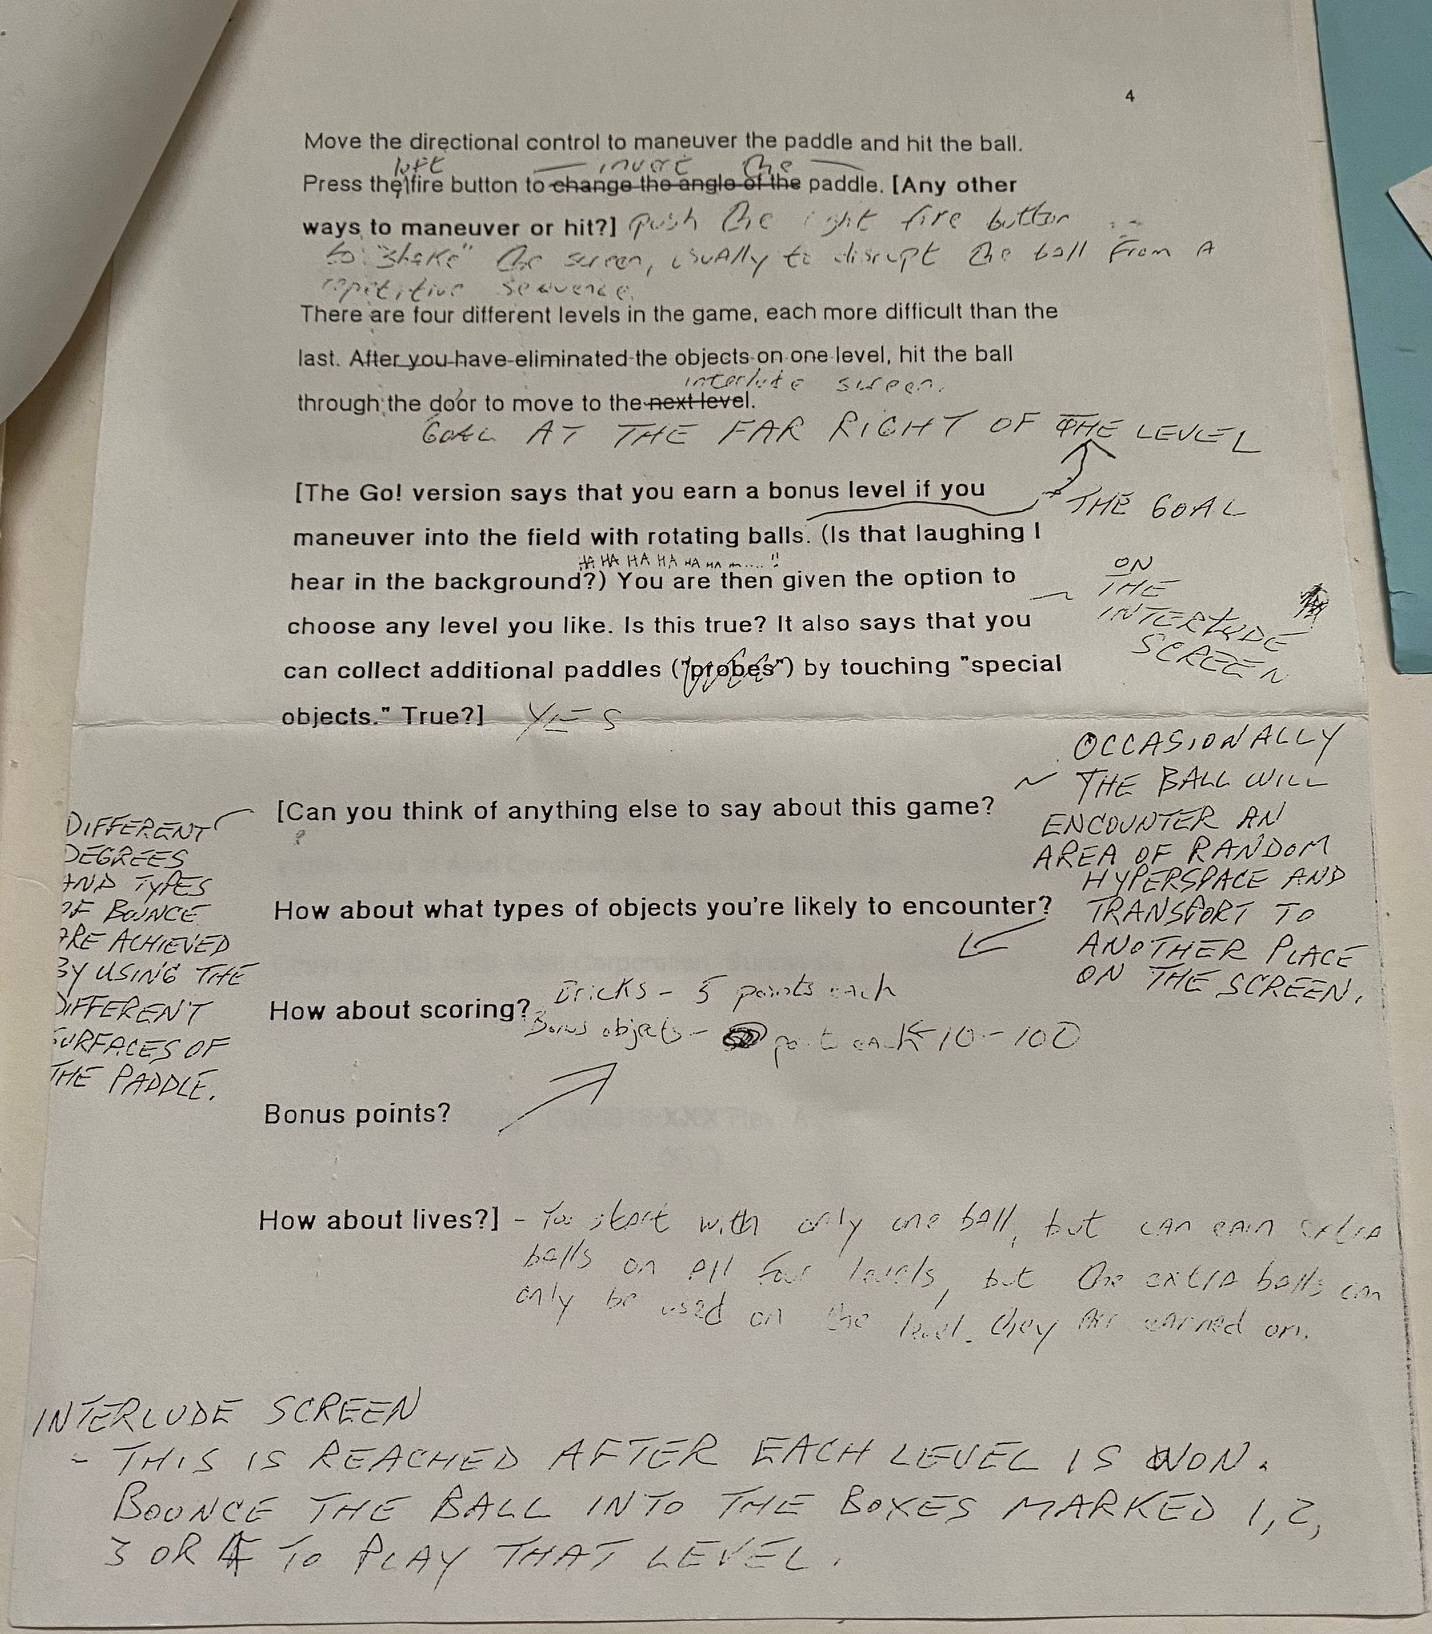 4
Move the directional control to maneuver the paddle and hit the ball.
left invert the
Press the fire button to change the angle of the paddle. [Any other
ways to maneuver or hit?] push the right fire button
to "shake" the screen, usually to disrupt the ball from A
repetitive sequence.
There are four different levels in the game, each more difficult than the
last. After you have eliminated the objects on one level, hit the ball
interlude screen.
through the door to move to the next level.
GOAL AT THE FAR RIGHT OF THE LEVEL
[The Go! version says that you earn a bonus level if you
THE GOAL
maneuver into the field with rotating balls. (Is that laughing I
HA HA HA HA HA HA ....!!
hear in the background?) You are then given the option to
ON
THE
INTERLUDE
SCREEN
choose any level you like. Is this true? It also says that you
can collect additional paddles ("probes") by touching "special
objects." True?] YES
[Can you think of anything else to say about this game?
?
OCCASIONALLY
THE BALL WILL
ENCOUNTER AN
AREA OF RANDOM
HYPERSPACE AND
TRANSPORT TO
ANOTHER PLACE
ON THE SCREEN.
DIFFERENT
DEGREES
AND TYPES
OF BOUNCE
ARE ACHIEVED
BY USING THE
DIFFERENT
SURFACES OF
THE PADDLE.
How about what types of objects you're likely to encounter?
How about scoring? Bricks - 5 points each
Bonus objects - point each 10 - 100
Bonus points?
How about lives?] - You start with only one ball, but can earn extra
balls on all four levels, but the extra balls can
only be used on the level they are earned on.
INTERLUDE SCREEN
- THIS IS REACHED AFTER EACH LEVEL IS WON.
BOUNCE THE BALL INTO THE BOXES MARKED 1, 2,
3 OR 4 TO PLAY THAT LEVEL.